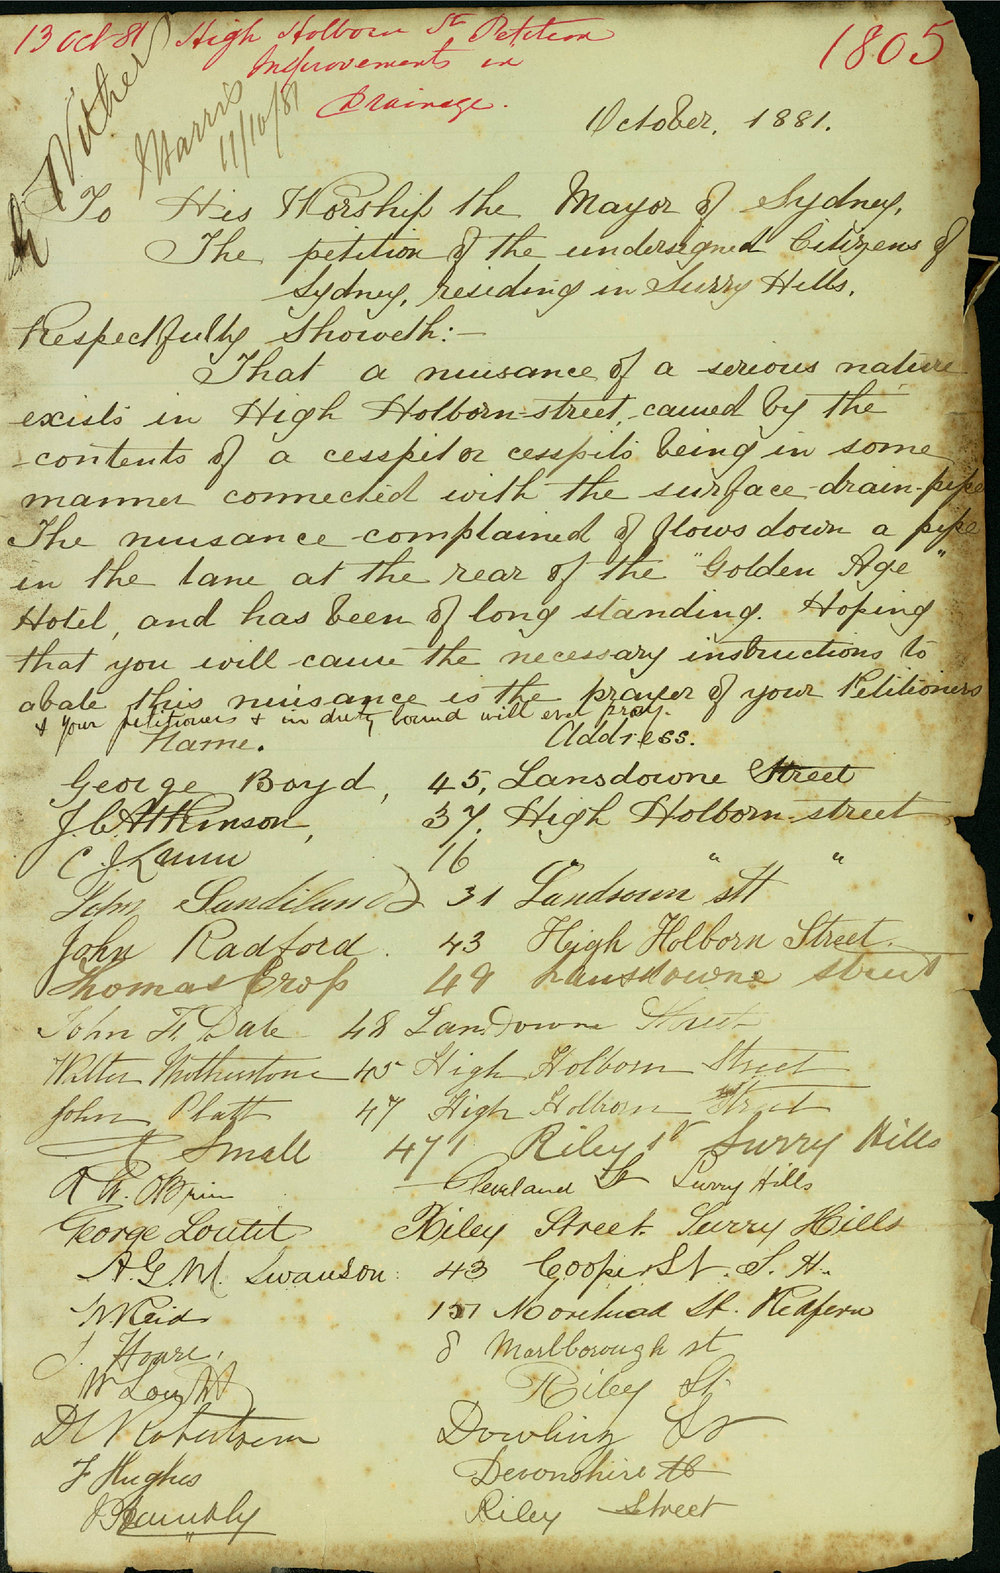 13 Oct 81 High Holborn St Petition 1805
Improvements in
Drainage.
Harris
11/10/81
October, 1881.
To His Worship the Mayor of Sydney,
The petition of the undersigned Citizens of
Sydney, residing in Surry Hills,
Respectfully Showeth:—
That a nuisance of a serious nature
exists in High Holborn-street, caused by the
contents of a cesspit or cesspits being in some
manner connected with the surface-drain-pipe
The nuisance complained of flows down a pipe
in the lane at the rear of the "Golden Age"
Hotel, and has been of long standing. Hoping
that you will cause the necessary instructions to
abate this nuisance is the prayer of your Petitioners
& your petitioners & in duty bound will ever pray.
Name. Address.
George Boyd, 45, Lansdowne Street
J. C. Atkinson, 37, High Holborn-street
C. J. Lunn 16 " " "
John Sandilands 31 Landsown stt
John Radford 43 High Holborn Street
Thomas Cross 49 Lansdowne street
John H Dale 48 Lansdowne Street
Walter Wotherstone 45 High Holborn Street
John Platt 47 High Holborn Street
Small 471 Riley St Surry Hills
O'Brien — Cleveland St Surry Hills
George Loutit Riley Street. Surry Hills
A. G. M. Swanson 43 Cooper St. S. H.
Reid 151 Morehead St. Redfern
J. Hoare, 8 Marlborough st
W Loutit Riley St.
Robertson Dowling St
F Hughes Devonshire St
Riley Street